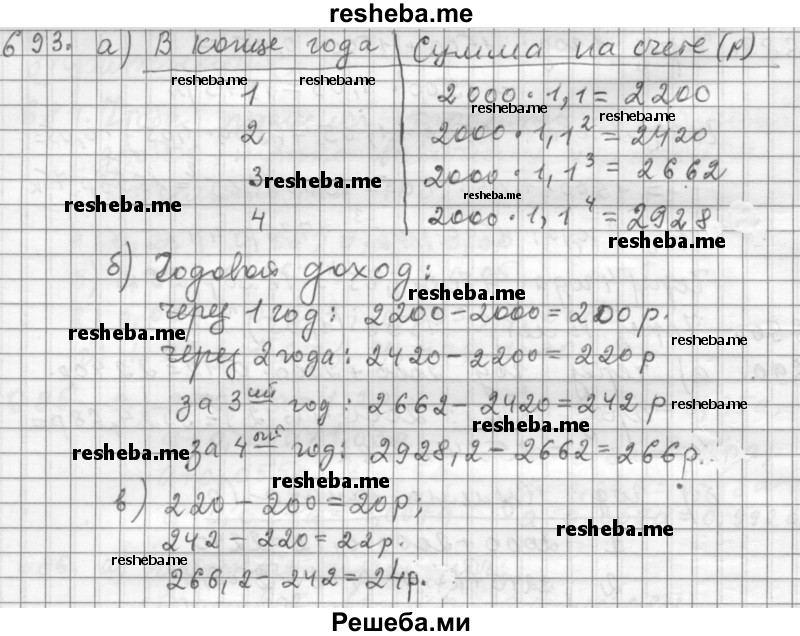 resheba.me
693. а) В конце года | Сумма на счете (р)
resheba.me resheba.me
1 2000 · 1,1 = 2200
resheba.me resheba.me
2 2000 · 1,1² = 2420
3 2000 · 1,1³ = 2662
resheba.me resheba.me
resheba.me
4 2000 · 1,1⁴ = 2928
resheba.me
б) Годовой доход:
resheba.me
через 1 год: 2200 – 2000 = 200 р.
resheba.me resheba.me
через 2 года: 2420 – 2200 = 220 р
за 3ий год: 2662 – 2420 = 242 р
resheba.me
resheba.me
за 4ый год: 2928,2 – 2662 = 266 р.
resheba.me
resheba.me
в) 220 – 200 = 20 р;
resheba.me
242 – 220 = 22 р.
resheba.me
266,2 – 242 = 24 р.
Решеба.ми